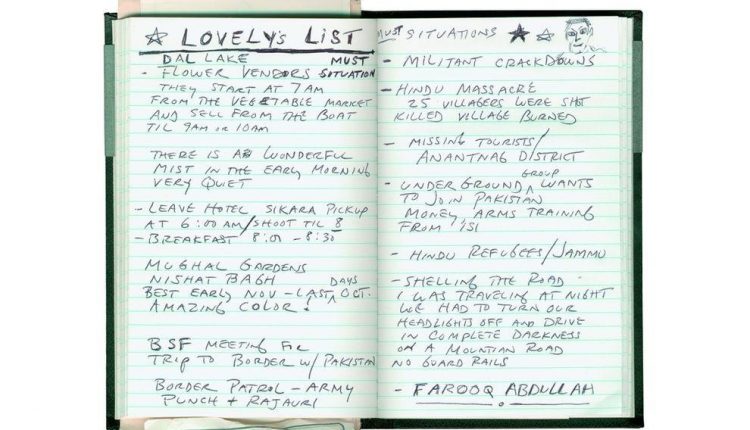 LOVELY'S LIST
DAL LAKE MUST
- FLOWER VENDORS SITUATION
THEY START AT 7 AM
FROM THE VEGETABLE MARKET
AND SELL FROM THE BOAT
TIL 9AM OR 10AM
THERE IS A WONDERFUL
MIST IN THE EARLY MORNING
VERY QUIET
- LEAVE HOTEL SIKARA PICKUP
AT 6:00 AM/SHOOT TIL 8
- BREAKFAST 8:01 - 8:30
MUGHAL GARDENS
NISHAT BAGH DAYS
BEST EARLY NOV - LAST OCT.
AMAZING COLOR!
BSF MEETING FOR
TRIP TO BORDER W/ PAKISTAN
BORDER PATROL - ARMY
PUNCH + RAJAURI
MUST SITUATIONS
- MILITANT CRACKDOWNS
- HINDU MASSACRE
25 VILLAGERS WERE SHOT
KILLED VILLAGE BURNED
- MISSING TOURISTS/
ANANTNAG DISTRICT
GROUP
- UNDER GROUND WANTS
TO JOIN PAKISTAN
MONEY, ARMS TRAINING
FROM 'ISI
- HINDU REFUGEES/JAMMU
- SHELLING THE ROAD.
I WAS TRAVELING AT NIGHT
WE HAD TO TURN OUR
HEADLIGHTS OFF AND DRIVE
IN COMPLETE DARKNESS
ON A MOUNTIAN ROAD
NO GUARD RAILS
- FAROOQ ABDULLAH